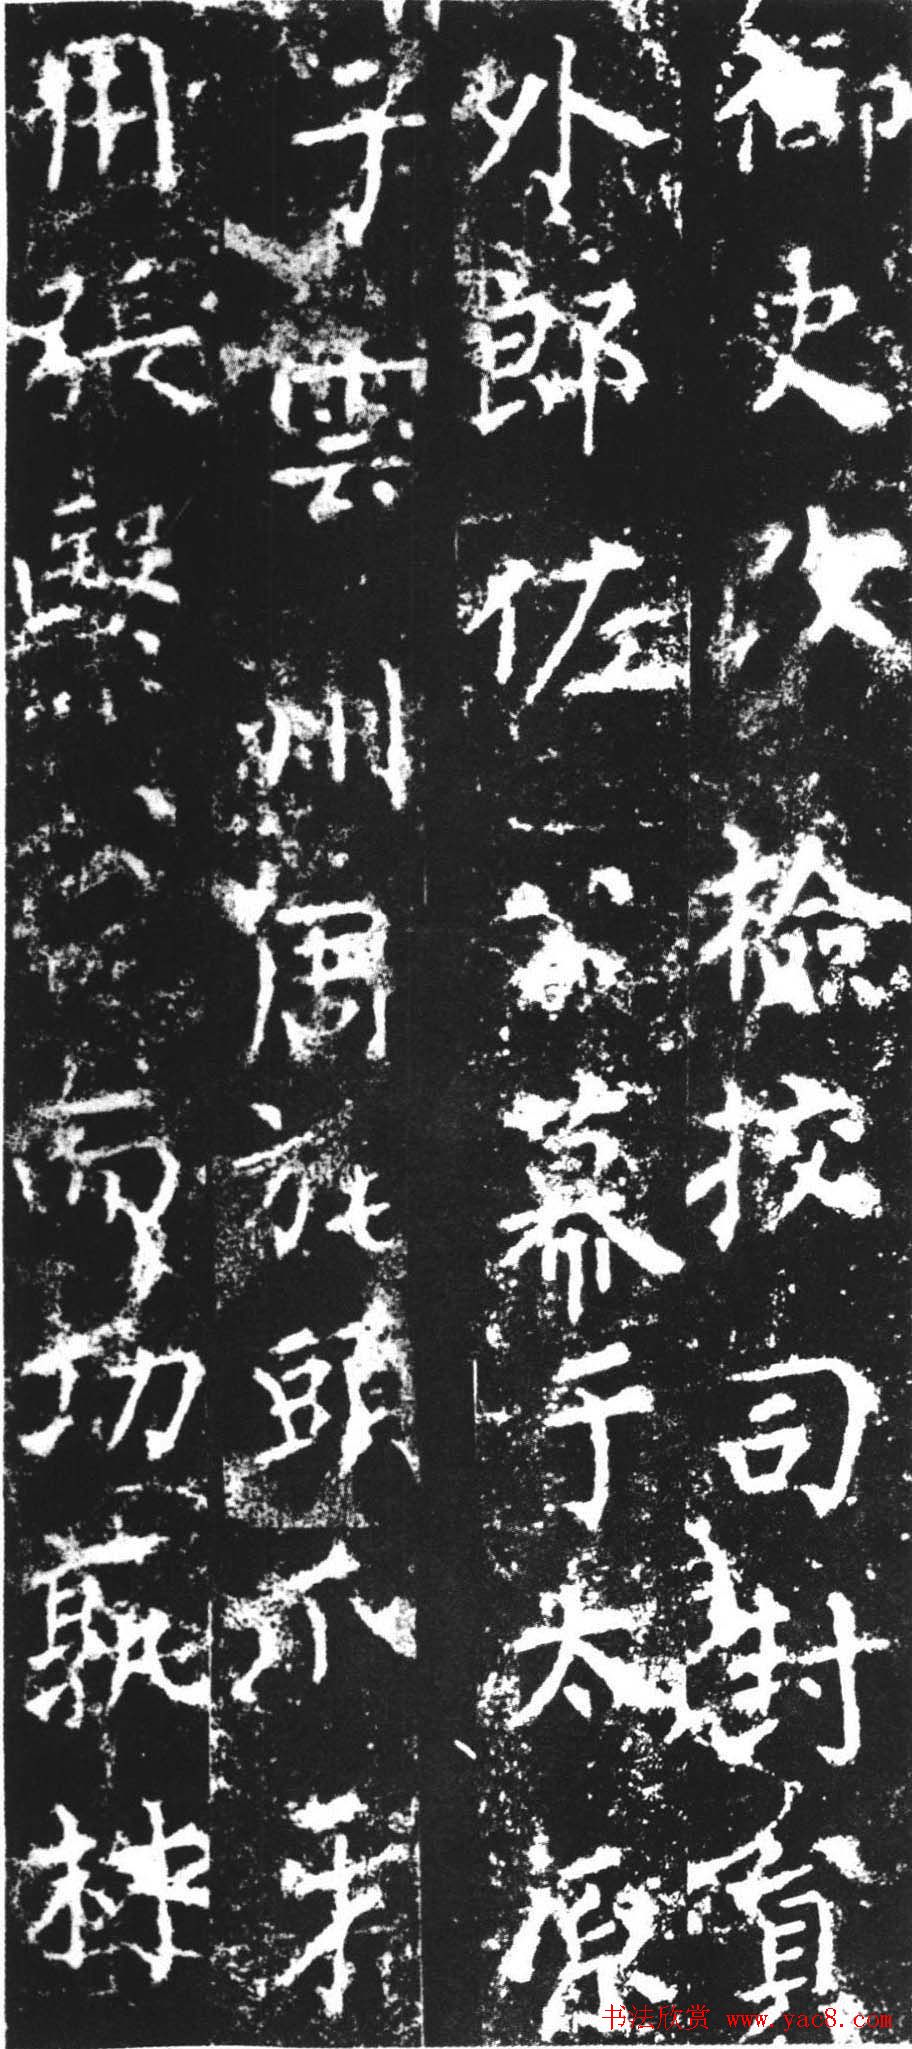 御史次檢挍司封員
外郎佐幕于太原
子雲州周於頭爪牙
用張而功最
书法欣赏 www.yac8.com